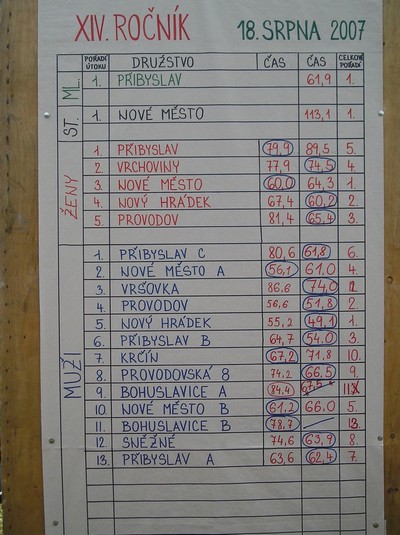 XIV. ROČNÍK 18. SRPNA 2007
POŘADÍ ÚTOKU DRUŽSTVO ČAS ČAS CELKOVÉ POŘADÍ
ML. 1. PŘIBYSLAV 61,9 1.
ST. 1. NOVÉ MĚSTO 113,1 1.
ŽENY
1. PŘIBYSLAV 79,9 89,5 5.
2. VRCHOVINY 77,9 74,5 4.
3. NOVÉ MĚSTO 60,0 64,3 1.
4. NOVÝ HRÁDEK 67,4 60,2 2.
5. PROVODOV 81,4 65,4 3.
MUŽI
1. PŘIBYSLAV C 80,6 61,8 6.
2. NOVÉ MĚSTO A 56,1 61.0 4.
3. VRŠOVKA 86.6 74,0 12.
4. PROVODOV 56,6 51,8 2.
5. NOVÝ HRÁDEK 55,2 49,1 1.
6. PŘIBYSLAV B 64,7 54.0 3.
7. KRČÍN 67,2 71,8 10.
8. PROVODOVSKÁ 8 74,2 66,5 9.
9. BOHUSLAVICE A 84,4 67,5
10. NOVÉ MĚSTO B 61,2 66.0 5.
11. BOHUSLAVICE B 78,7 13.
12. SNĚŽNÉ 74,6 63,9 8.
13. PŘIBYSLAV A 63,6 62,4 7.